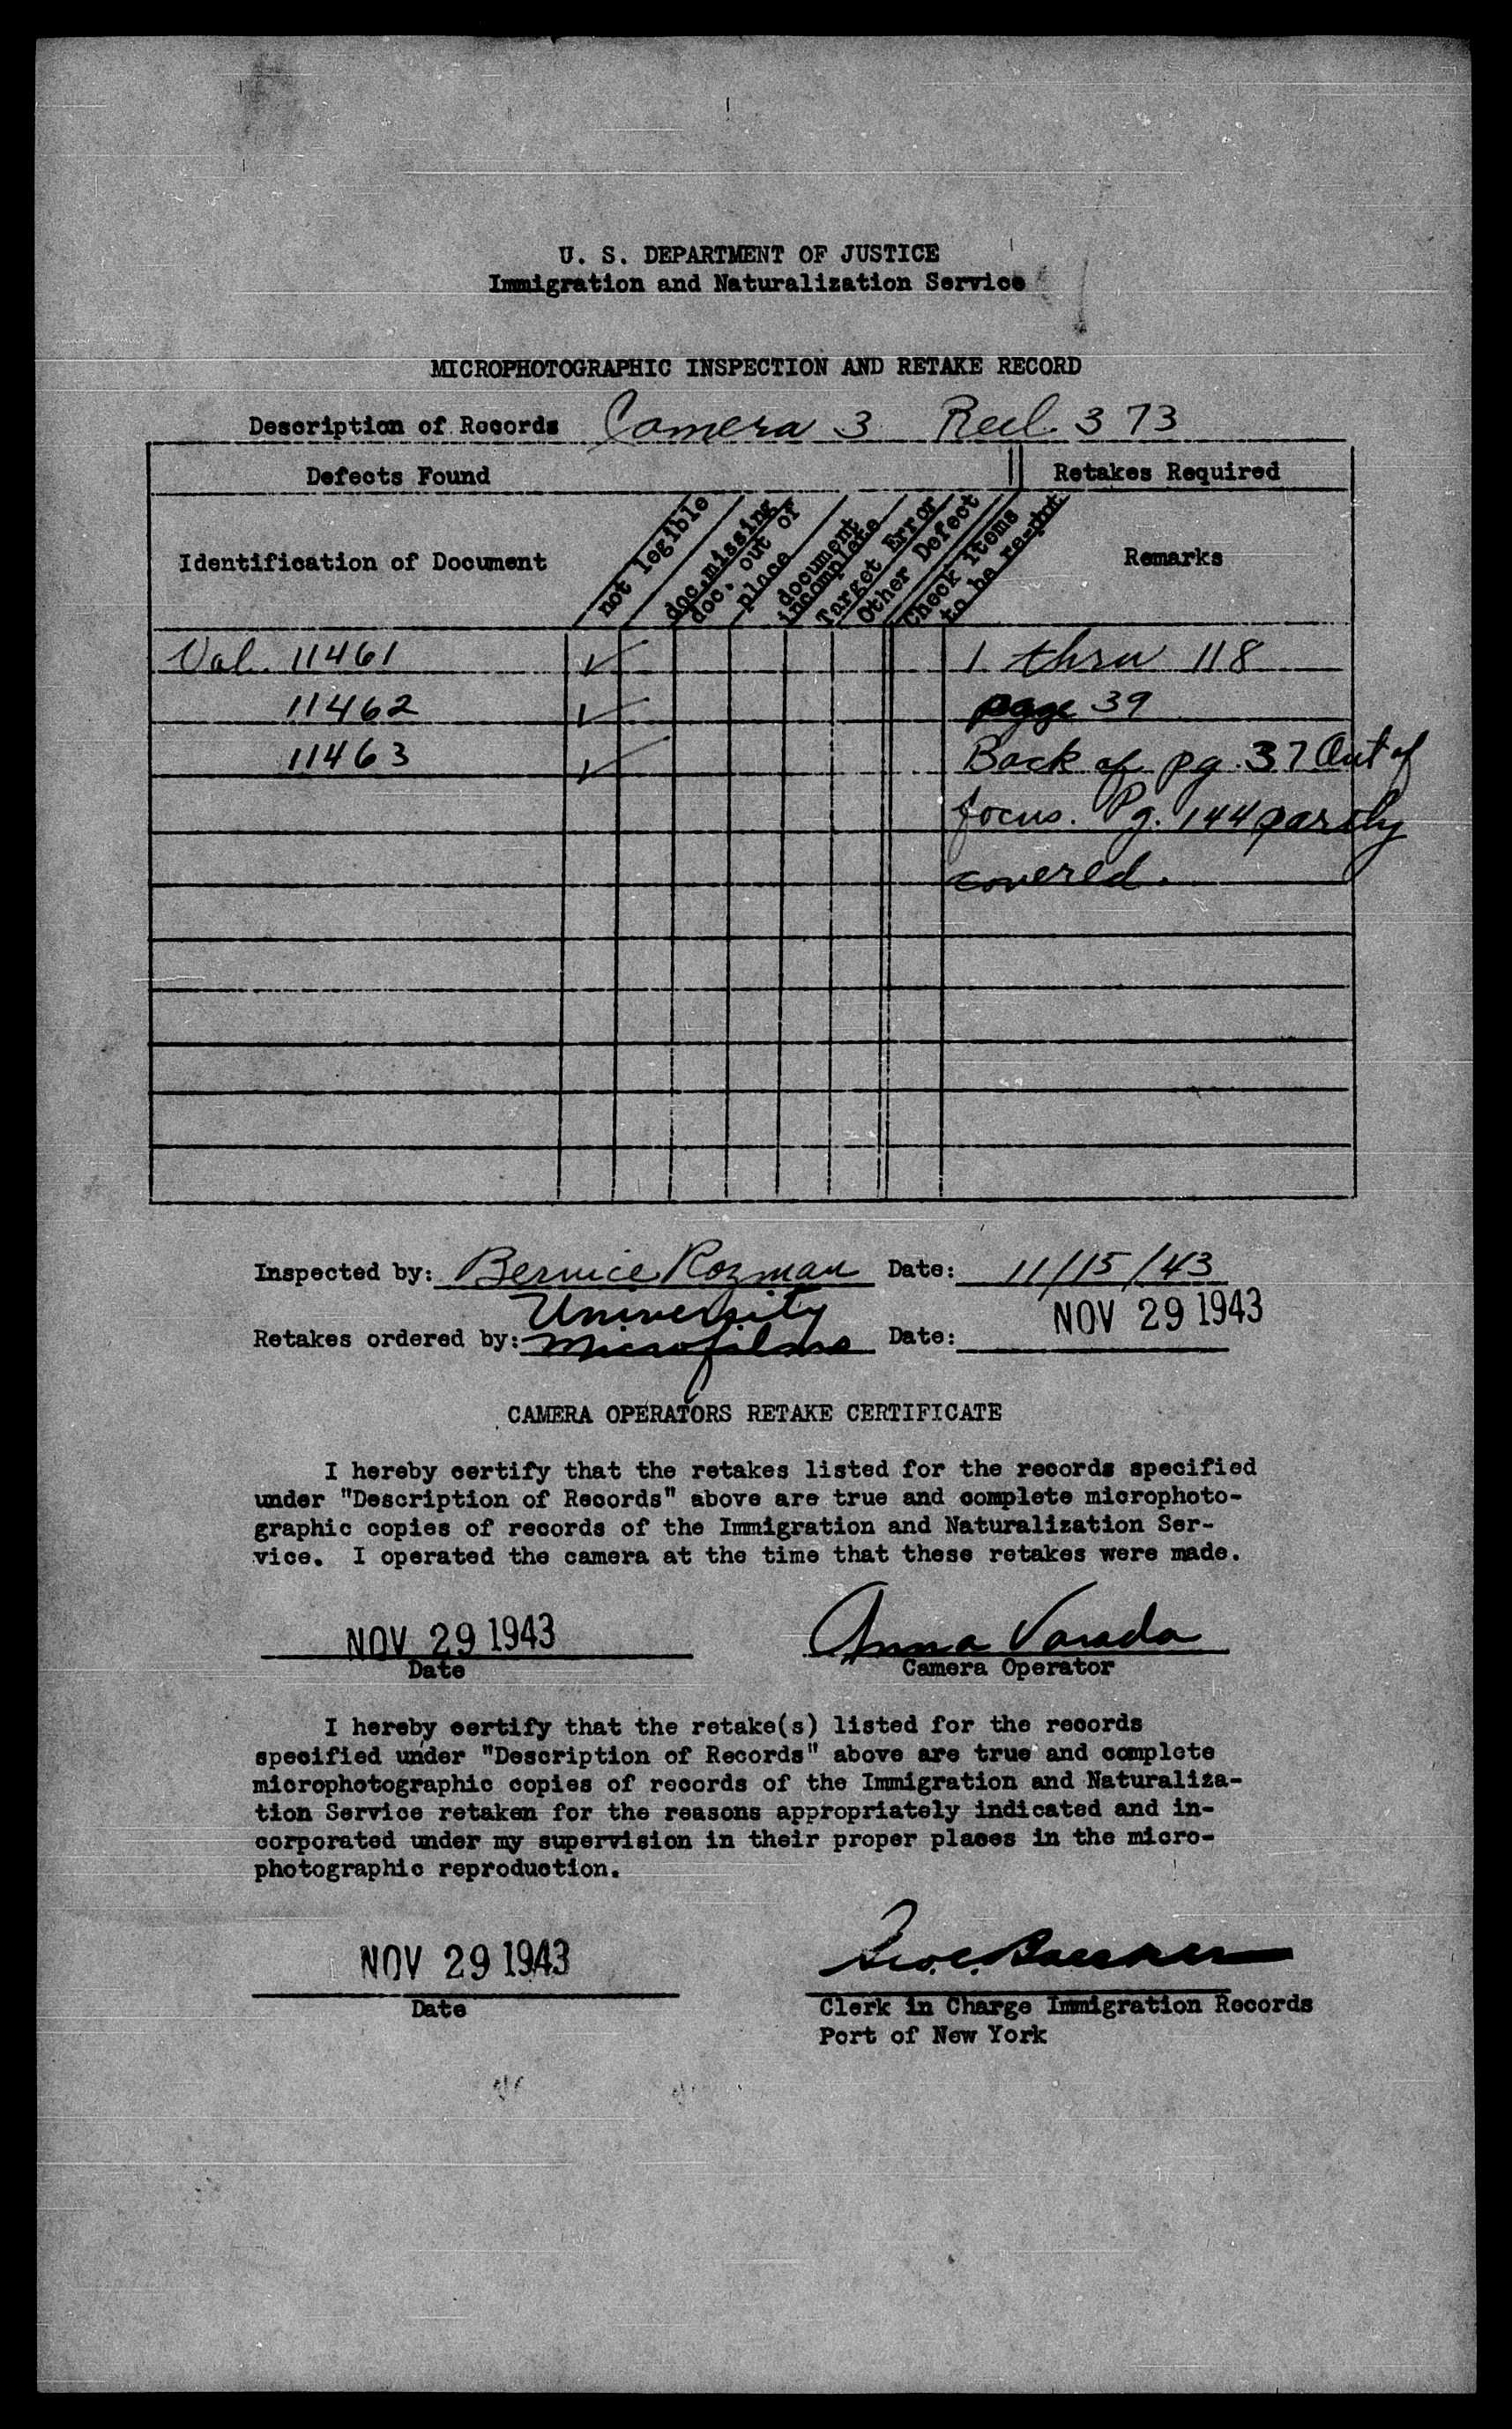 U. S. DEPARTMENT OF JUSTICE
Immigration and Naturalization Service
MICROPHOTOGRAPHIC INSPECTION AND RETAKE RECORD
Description of Records Camera 3 Reel 373
Defects Found Retakes Required
Identification of Document
not legible
doc. missing
doc. out of
place
document
incomplete
Target Error
Other Defect
Check items
to be re-phot
Remarks
Vol. 11461 ✓ 1 thru 118
11462 ✓ page 39
11463 ✓ Back of pg. 37 Out of
focus. Pg. 144 partly
covered.
Inspected by: Bernice Rozman Date: 11/15/43
University
Retakes ordered by: Microfilms Date: NOV 29 1943
CAMERA OPERATORS RETAKE CERTIFICATE
I hereby certify that the retakes listed for the records specified
under "Description of Records" above are true and complete microphoto-
graphic copies of records of the Immigration and Naturalization Ser-
vice. I operated the camera at the time that these retakes were made.
NOV 29 1943 Anna Varada
Date Camera Operator
I hereby certify that the retake(s) listed for the records
specified under "Description of Records" above are true and complete
microphotographic copies of records of the Immigration and Naturaliza-
tion Service retaken for the reasons appropriately indicated and in-
corporated under my supervision in their proper places in the micro-
photographic reproduction.
NOV 29 1943
Date Clerk in Charge Immigration Records
Port of New York